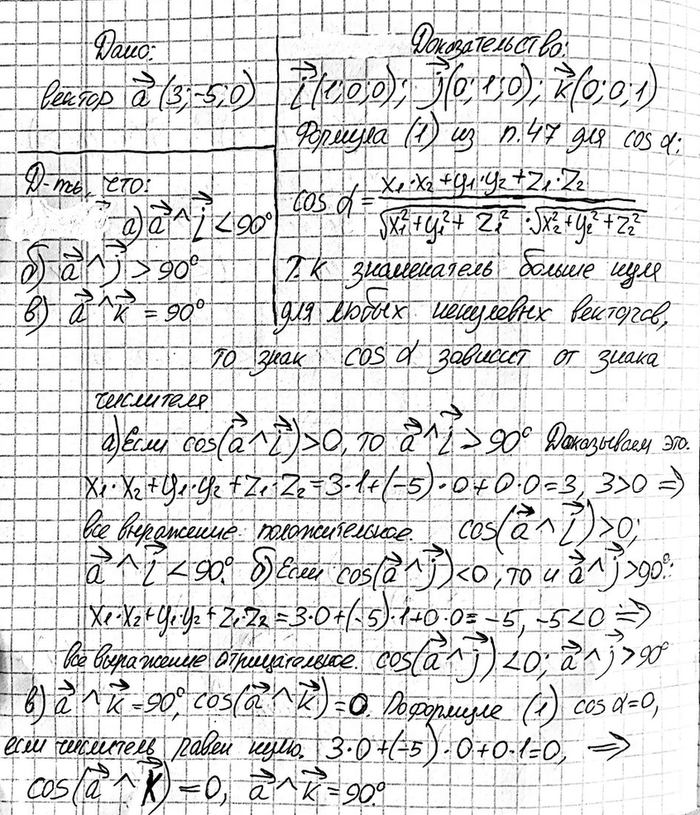 Дано:
вектор a⃗ (3; -5; 0)
Д-ть, что:
а) a⃗ ^ i⃗ < 90°
б) a⃗ ^ j⃗ > 90°
в) a⃗ ^ k⃗ = 90°
Доказательство:
i⃗ (1; 0; 0); j⃗ (0; 1; 0); k⃗ (0; 0; 1)
Формула (1) из п.47 для cos α:
cos α = (x₁·x₂ + y₁·y₂ + z₁·z₂) / (√(x₁² + y₁² + z₁²) · √(x₂² + y₂² + z₂²))
Т.к знаменатель больше нуля
для любых ненулевых векторов,
то знак cos α зависит от знака
числителя
а) Если cos(a⃗ ^ i⃗) > 0, то a⃗ ^ i⃗ > 90° Доказываем это.
x₁·x₂ + y₁·y₂ + z₁·z₂ = 3·1 + (-5)·0 + 0·0 = 3, 3 > 0 ⇒
все выражение положительное. cos(a⃗ ^ i⃗) > 0;
a⃗ ^ i⃗ < 90°. б) Если cos(a⃗ ^ j⃗) < 0, то и a⃗ ^ j⃗ > 90°:
x₁·x₂ + y₁·y₂ + z₁·z₂ = 3·0 + (-5)·1 + 0·0 = -5, -5 < 0 ⇒
все выражение отрицательное. cos(a⃗ ^ j⃗) < 0; a⃗ ^ j⃗ > 90°
в) a⃗ ^ k⃗ = 90°, cos(a⃗ ^ k⃗) = 0. По формуле (1) cos α = 0,
если числитель равен нулю. 3·0 + (-5)·0 + 0·1 = 0, ⇒
cos(a⃗ ^ k⃗) = 0, a⃗ ^ k⃗ = 90°.